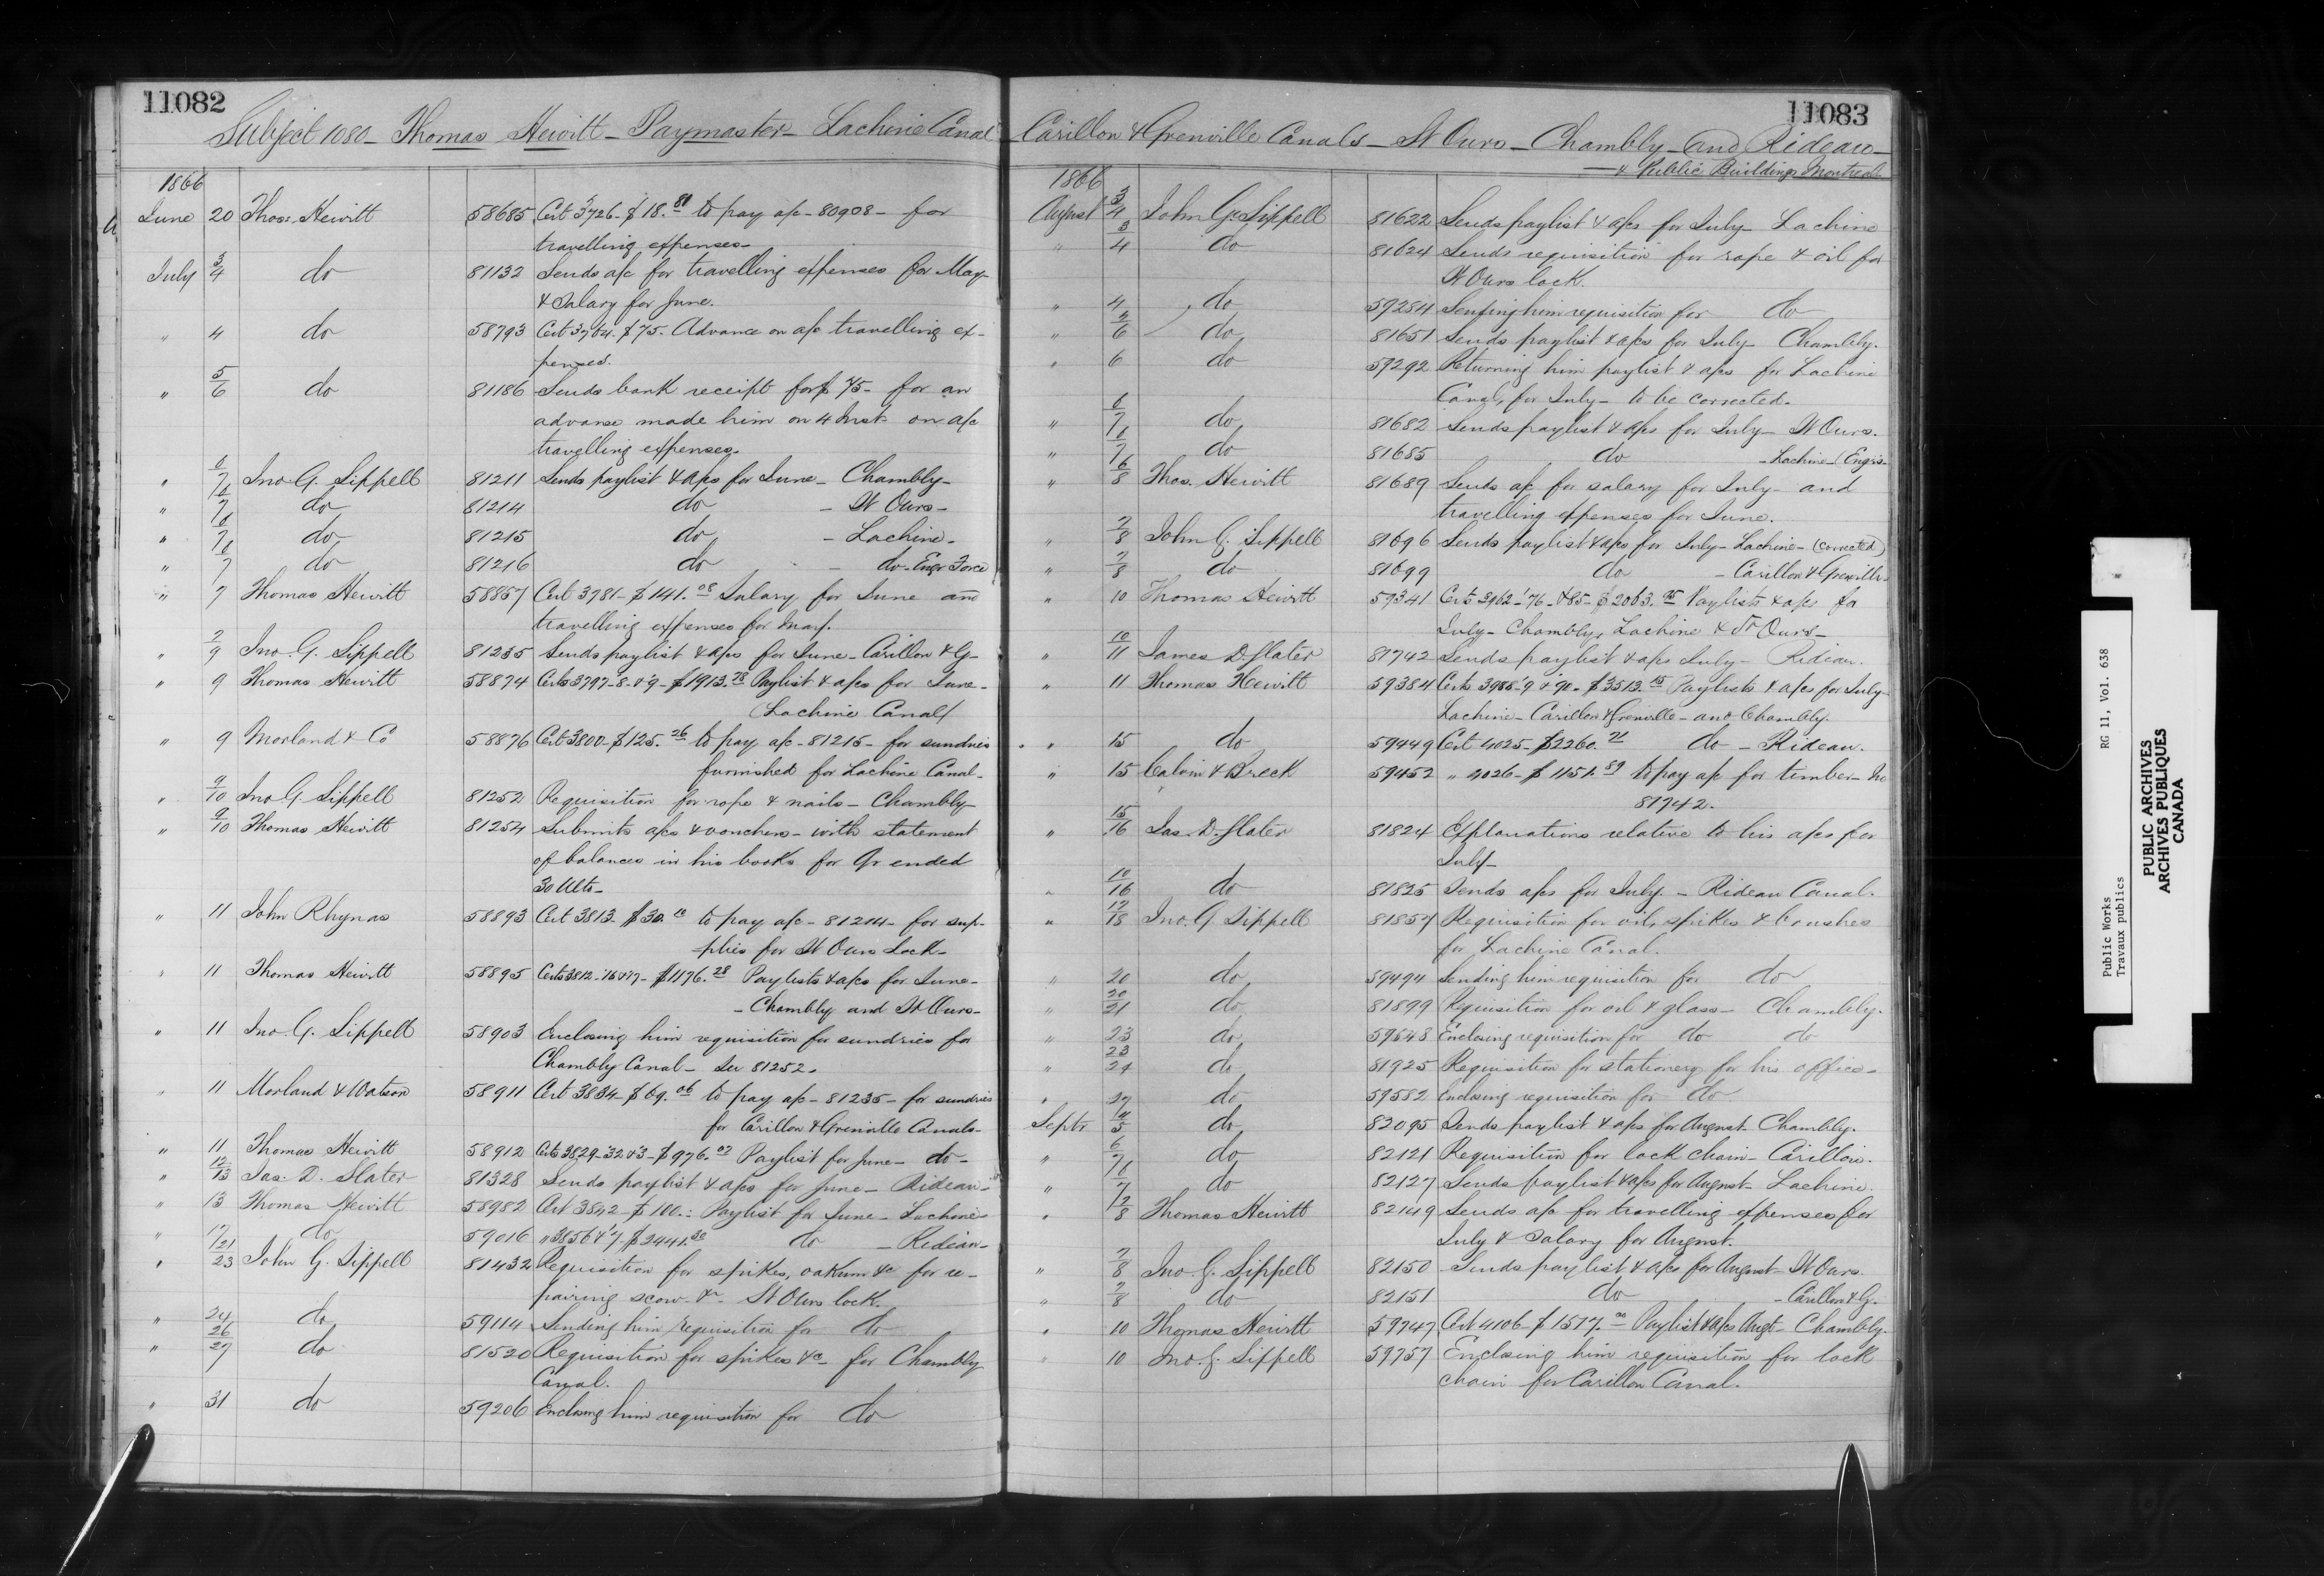 11082
Subject 1080 - Thomas Hewitt - Paymaster - Lachine Canal
1866
June 20 Thos: Hewitt 58685 Cert 3726 - $18.81 to pay a/c - 80908 - for
travelling expenses -
July 3/4 do 81132 Sends a/c for travelling expenses for May
& Salary for June.
" 4 do 58793 Cert 3764. $75. Advance on a/c travelling ex-
penses.
" 5/6 do 81186 Sends bank receipt for $75 - for an
advance made him on 4 Inst on a/c
travelling expenses -
" 6/7 Jno. G. Sippell 81211 Sends paylist & a/cs for June - Chambly -
" 6/7 do 81214 do - St Ours -
" 6/7 do 81215 do - Lachine -
" 6/7 do 81216 do - do - Engr Force
" 7 Thomas Hewitt 58857 Cert 3781 - $141.08 Salary for June and
travelling expenses for May.
" 7/9 Jno. G. Sippell 81235 Sends paylist & a/cs for June - Carillon & G -
" 9 Thomas Hewitt 58874 Certs 3797 - 8 - & 9 - $1913.78 Paylist & a/cs for June -
Lachine Canal
" 9 Morland & Co 58876 Cert 3800 - $125.26 to pay a/c - 81215 - for sundries
furnished for Lachine Canal -
" 9/10 Jno. G. Sippell 81252 Requisition for rope & nails - Chambly
" 9/10 Thomas Hewitt 81254 Submits a/cs & vouchers - with statement
of balances in his books for Qr ended
30 Ulto -
" 11 John Rhynas 58893 Cert 3813. $30.10 to pay a/c - 81214 - for sup-
plies for St Ours Lock -
" 11 Thomas Hewitt 58895 Certs 3812 - 16 & 17 - $1176.28 Paylists & a/cs for June -
- Chambly and St Ours -
" 11 Jno. G. Sippell 58903 Enclosing him requisition for sundries for
Chambly Canal - See 81252 -
" 11 Morland & Watson 58911 Cert 3834 - $69.06 to pay a/c - 81235 - for sundries
for Carillon & Grenville Canals -
" 11 Thomas Hewitt 58912 Certs 3829 - 32 & 3 - $976.02 Paylist for June - do -
" 12/13 Jas. D. Slater 81328 Sends paylist & a/cs for June - Rideau -
" 13 Thomas Hewitt 58982 Cert 3842 - $100.: Paylist for June - Lachine
" 17 do 59016 " 3856 & 7 - $2441.30 do - Rideau -
" 21/23 John G. Sippell 81432 Requisition for spikes, oakum &c for re-
pairing scow &c - St Ours lock.
" 24 do 59114 Sending him requisition for do
" 26/27 do 81520 Requisition for spikes &c - for Chambly
Canal.
" 31 do 59206 Enclosing him requisition for do
11083
Carillon & Grenville Canals - St Ours - Chambly - and Rideau -
& Public Buildings Montreal
1866
August 3/4 John G. Sippell 81622 Sends paylist & a/cs for July - Lachine
" 3/4 do 81624 Sends requisition for rope & oil for
St Ours lock.
" 4 do 59284 Sending him requisition for do
" 4/6 do 81651 Sends paylist & a/cs for July - Chambly.
" 6 do 59292 Returning him paylist & a/cs for Lachine
Canal, for July - to be corrected.
" 6/7 do 81682 Sends paylist & a/cs for July - St Ours.
" 6/7 do 81685 do - Lachine - (Engrs
" 6/8 Thos. Hewitt 81689 Sends a/c for salary for July - and
travelling expenses for June.
" 7/8 John G. Sippell 81696 Sends paylist & a/cs for July - Lachine - (corrected)
" 7/8 do 81699 do - Carillon & Grenville
" 10 Thomas Hewitt 59341 Certs 3962 - 76 - & 85 - $2063.95 Paylists & a/cs for
July - Chambly, Lachine & St Ours -
" 10/11 James D. Slater 81742 Sends paylist & a/cs July - Rideau.
" 11 Thomas Hewitt 59384 Certs 3988 - 9 & 90 - $3513.15 Paylists & a/cs for July
Lachine - Carillon & Grenville - and Chambly.
" 15 do 59449 Cert 4025 - $2260.71 do - Rideau.
" 15 Calvin & Breck 59452 " 4026 - $1151.89 to pay a/c for timber - No
81742.
" 15/16 Jas. D. Slater 81824 Explanations relative to his a/cs for
July -
" 10/16 do 81825 Sends a/cs for July. - Rideau Canal.
" 17/18 Jno. G. Sippell 81857 Requisition for oil, spikes & brushes
for Lachine Canal.
" 20 do 59494 Sending him requisition for do
" 20/21 do 81899 Requisition for oil & glass - Chambly.
" 23 do 59548 Enclosing requisition for do do
" 23/24 do 81925 Requisition for stationery for his office -
" 27 do 59582 Enclosing requisition for do
Septr 4/5 do 82095 Sends paylist & a/cs for August. Chambly.
" 6/7 do 82121 Requisition for lock chain - Carillon.
" 6/7 do 82127 Sends paylist & a/cs for August - Lachine.
" 7/8 Thomas Hewitt 82149 Sends a/c for travelling expenses for
July & Salary for August.
" 7/8 Jno. G. Sippell 82150 Sends paylist & a/cs for August - St Ours.
" 7/8 do 82151 do - Carillon & G.
" 10 Thomas Hewitt 59747 Cert 4106 - $1577. Paylist & a/cs Augt - Chambly.
" 10 Jno. G. Sippell 59757 Enclosing him requisition for lock
chain for Carillon Canal.
Public Works RG 11, Vol. 638
Travaux publics
PUBLIC ARCHIVES
ARCHIVES PUBLIQUES
CANADA